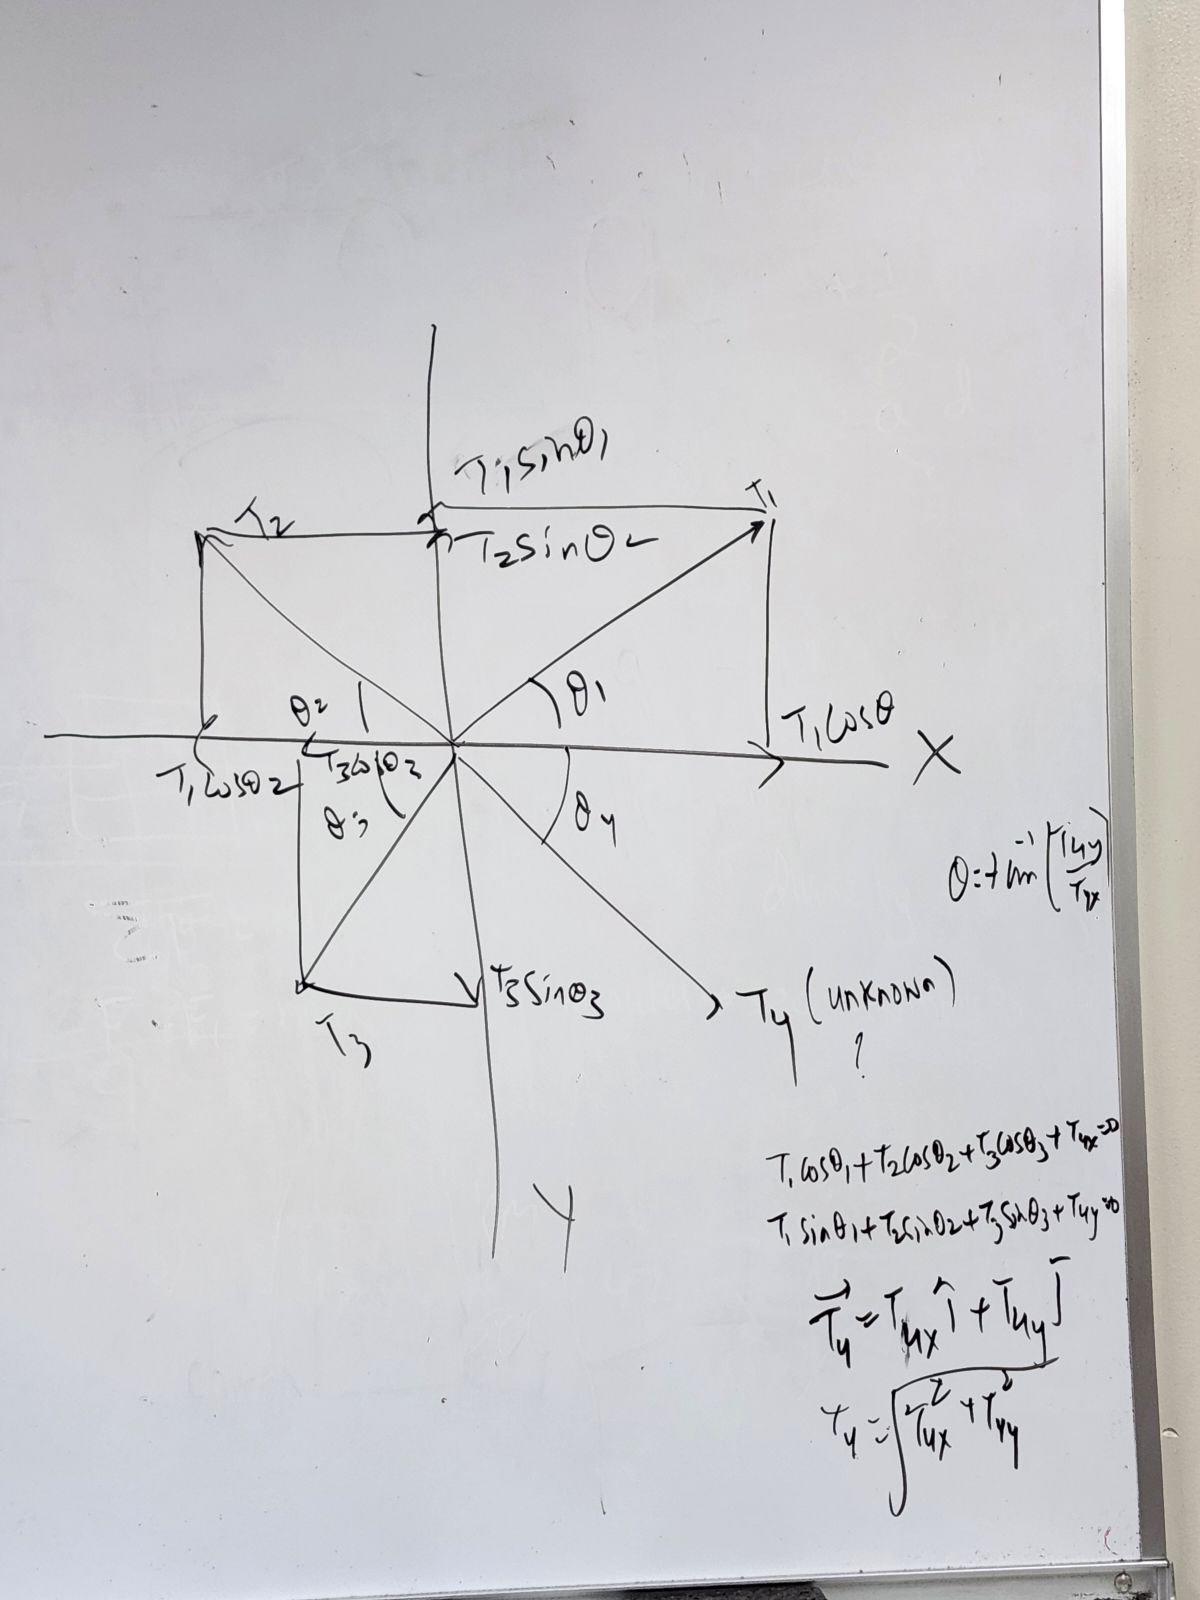 T₁sinθ₁
T₂
T₁
T₂sinθ₂
θ₂
θ₁
T₁cosθ
X
T₁cosθ₂
T₃cosθ₃
θ₃
θ4
θ=tan⁻¹(T4y/T4x)
T₃sinθ₃
T₃
T4 (unknown)
?
T₁cosθ₁+T₂cosθ₂+T₃cosθ₃+T4x=0
T₁sinθ₁+T₂sinθ₂+T₃sinθ₃+T4y=0
Y
T⃗4=T4x î+T4y j
T4=√T4x²+T4y²